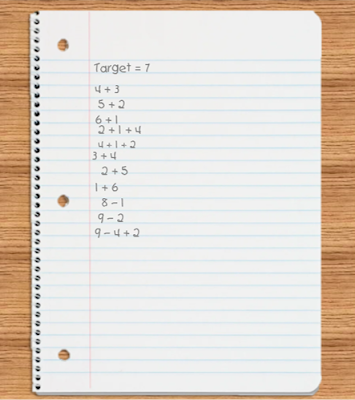 Target = 7
4 + 3
5 + 2
6 + 1
2 + 1 + 4
4 + 1 + 2
3 + 4
2 + 5
1 + 6
8 - 1
9 - 2
9 - 4 + 2